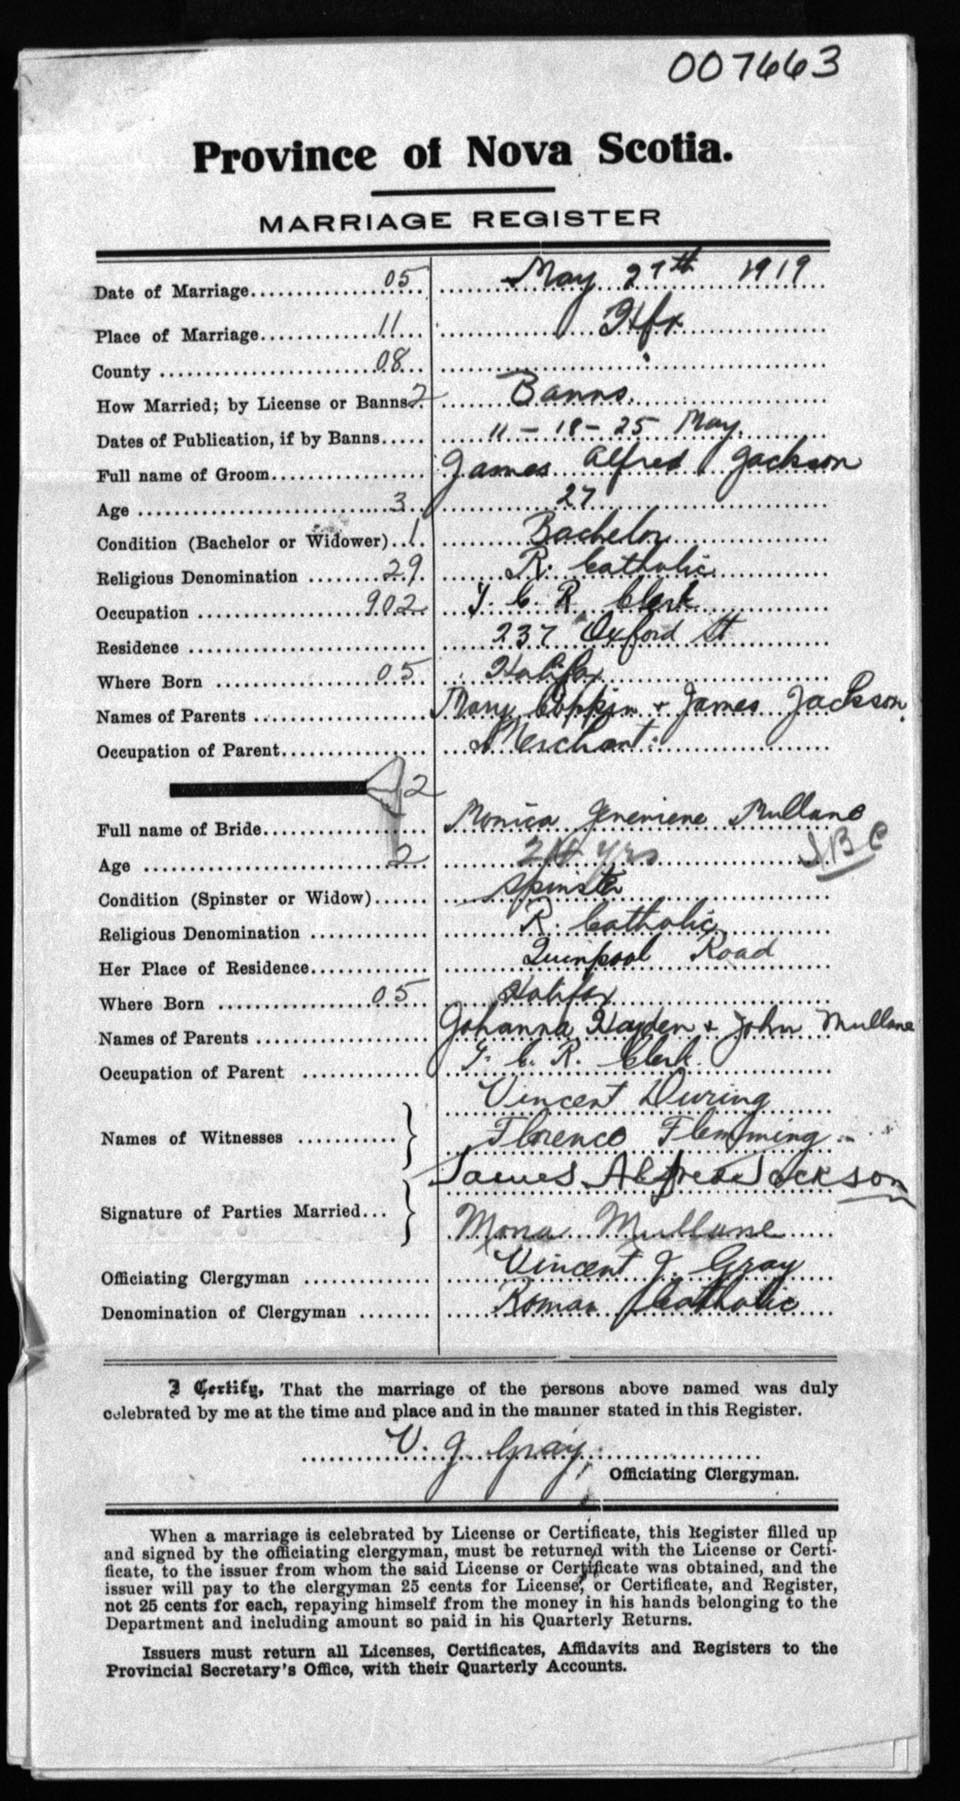 007663
Province of Nova Scotia.
MARRIAGE REGISTER
Date of Marriage 05 May 27th 1919
Place of Marriage 11 Hfx
County 08
How Married; by License or Banns 2 Banns.
Dates of Publication, if by Banns 11 - 18 - 25 May.
Full name of Groom James Alfred Jackson
Age 3 27
Condition (Bachelor or Widower) 1 Bachelor
Religious Denomination 29 R. Catholic
Occupation 902 C. R. Clerk
Residence 237 Oxford St
Where Born 05 Halifax
Names of Parents Mary Coppin + James Jackson.
Occupation of Parent Merchant.
2
Full name of Bride Monica Genevieve Mullane
Age 2 yrs
Condition (Spinster or Widow) Spinster
Religious Denomination R. Catholic
Her Place of Residence Quinpool Road
Where Born 05 Halifax
Names of Parents Johanna Hayden + John Mullane
Occupation of Parent C. R. Clerk
Vincent During
Names of Witnesses Florence Flemming
James Alfred Jackson
Signature of Parties Married Mona Mullane
Officiating Clergyman Vincent J. Gray
Denomination of Clergyman Roman Catholic
I Certify, That the marriage of the persons above named was duly
celebrated by me at the time and place and in the manner stated in this Register.
V. J. Gray
Officiating Clergyman.
When a marriage is celebrated by License or Certificate, this Register filled up
and signed by the officiating clergyman, must be returned with the License or Certi-
ficate, to the issuer from whom the said License or Certificate was obtained, and the
issuer will pay to the clergyman 25 cents for License, or Certificate, and Register,
not 25 cents for each, repaying himself from the money in his hands belonging to the
Department and including amount so paid in his Quarterly Returns.
Issuers must return all Licenses, Certificates, Affidavits and Registers to the
Provincial Secretary's Office, with their Quarterly Accounts.